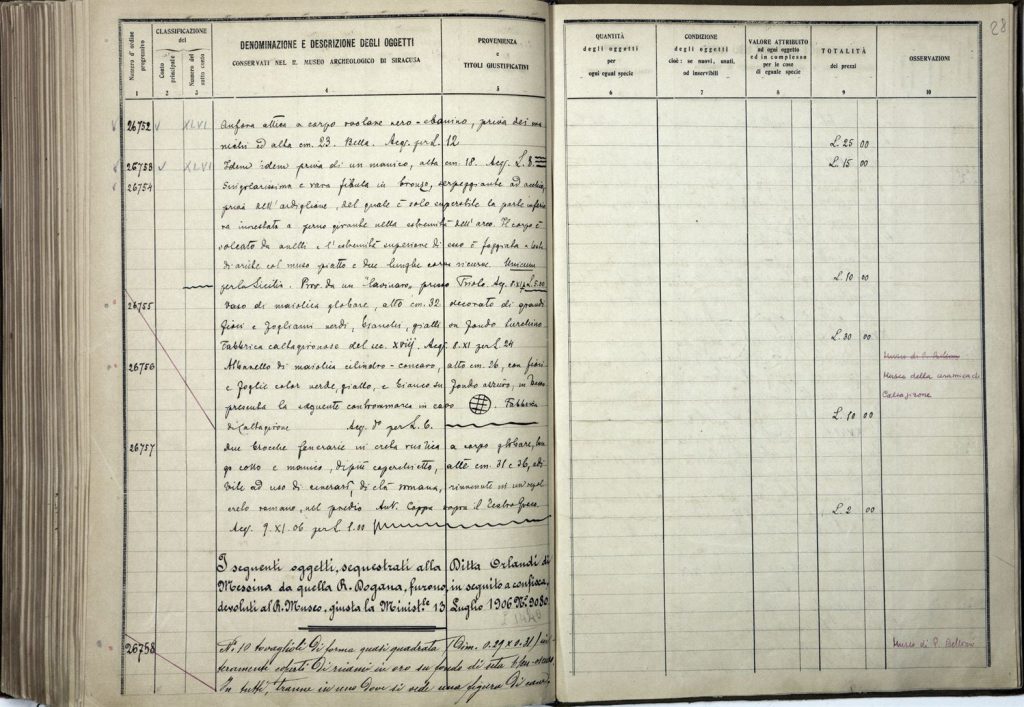 28
Numero d'ordine progressivo
CLASSIFICAZIONE dei
Conto principale
Numero del sotto conto
DENOMINAZIONE E DESCRIZIONE DEGLI OGGETTI
CONSERVATI NEL R. MUSEO ARCHEOLOGICO DI SIRACUSA
PROVENIENZA
e
TITOLI GIUSTIFICATIVI
QUANTITÀ
degli oggetti
per
ogni egual specie
CONDIZIONE
degli oggetti
cioè: se nuovi, usati,
od inservibili
VALORE ATTRIBUITO
ad ogni oggetto
ed in complesso
per le cose
di eguale specie
TOTALITÀ
dei prezzi
OSSERVAZIONI
1 2 3 4 5 6 7 8 9 10
26752 XLVI Anfora attica a corpo ovolare nero-ebanino, priva dei ma
nichi ed alta cm. 23. Bella. Acq. per L. 12 L. 25 00
26753 XLVI Idem idem priva di un manico, alta cm. 18. Acq. L. 8 L. 15 00
26754 Singolarissima e rara fibula in bronzo, serpeggiante ad
priva dell'ardiglione, del quale è solo superstite la parte
innestata a perno girante nella estremità dell'arco. Il corpo è
da anelli e l'estremità superiore di esso è foggiata a testa
di ariete col muso piatto e due lunghe corna ricurve. Unicum
per la Sicilia. Prov. da un "lavinaro, presso Acq. L. 5.00 L. 10 00
26755 Vaso di maiolica globare, alto cm. 32 decorato di grandi
fiori e fogliami verdi, bianchi, gialli on fondo turchino.
Fabbrica caltagironese del sec. XVIII. Acq. 8. XI per L. 24 L. 30 00
26756 Albarello di maiolica cilindro-concavo, alto cm. 26, con fiori
e foglie color verde, giallo, e bianco su fondo azzurro, in basso
presenta la seguente contrommarca in cavo . Fabbrica
di Caltagirone Acq. per L. 6. L. 10 00
Museo della ceramica di
Caltagirone
26757 Due brocche funerarie in creta rustica a corpo globare, lun
go collo e manico, di più coperchietto, alte cm. 31 e 36, adi
bite ad uso di cinerari, di età romana, rinvenute in un sepol
creto romano, nel predio Ant. Cappa sopra il Teatro Greco.
Acq. 9. XI. 06 per L. 1.00 L. 2 00
I seguenti oggetti, sequestrati alla Ditta Orlandi di
Messina da quella R. Dogana, furono, in seguito a confisca,
devoluti al R. Museo, giusta la Minist.le 13 Luglio 1906 N.º 9080.
26758 N.º 10 tovaglioli di forma quasi quadrata (Dim. 0.29 x 0.31) in
teramente coperti di ricami in oro su fondo di seta
In tutti, tranne in uno dove si vede una figura di
Museo di P. Bellomo